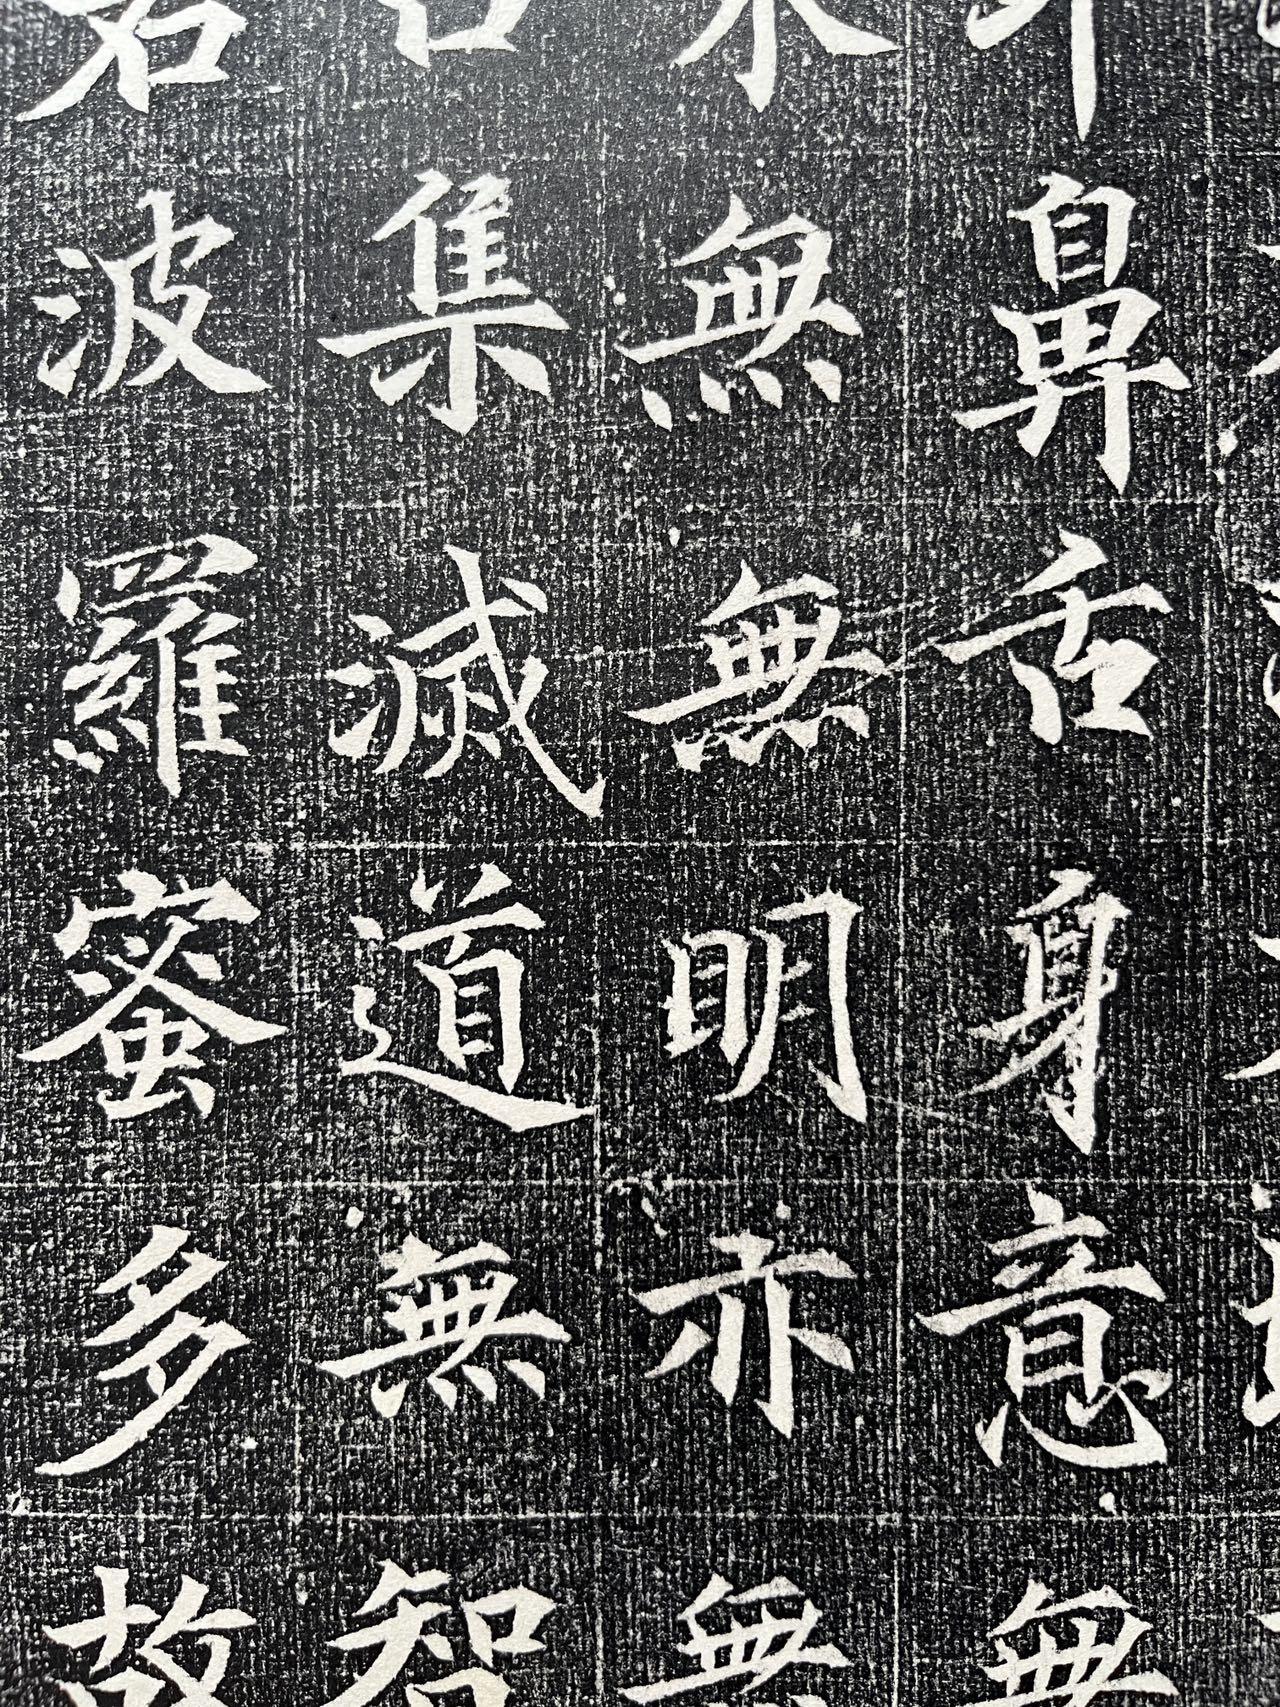 鼻舌身意無
無無明亦無
集滅道無智
若波羅蜜多故